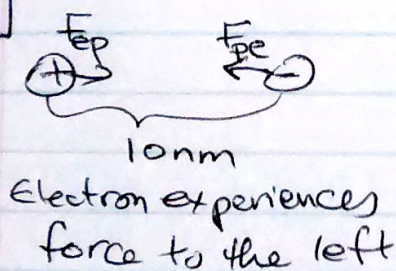 Fep Fpe
+ -
10nm
Electron experiences
force to the left